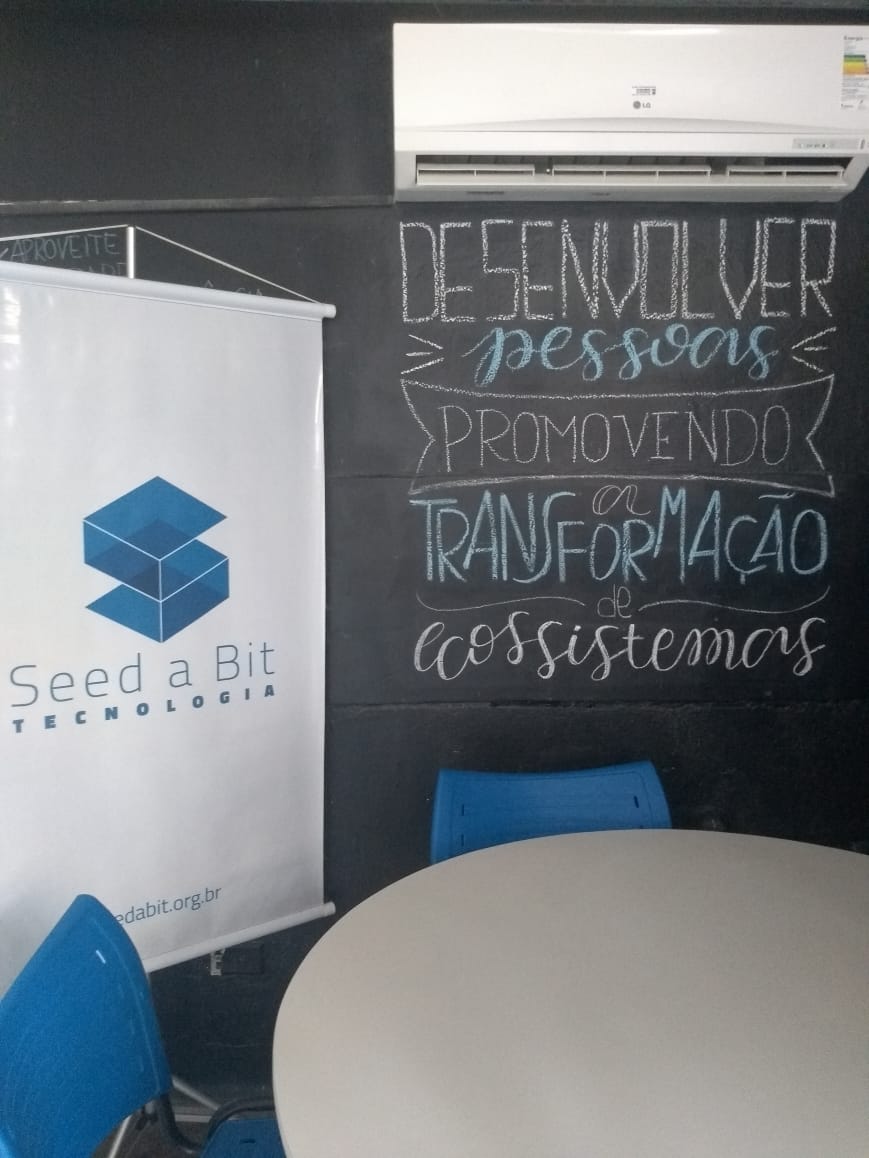 LG
Energia
APROVEITE
DESENVOLVER
pessoas
PROMOVENDO
a
TRANSFORMAÇÃO
de
ecossistemas
Seed a Bit
TECNOLOGIA
edabit.org.br